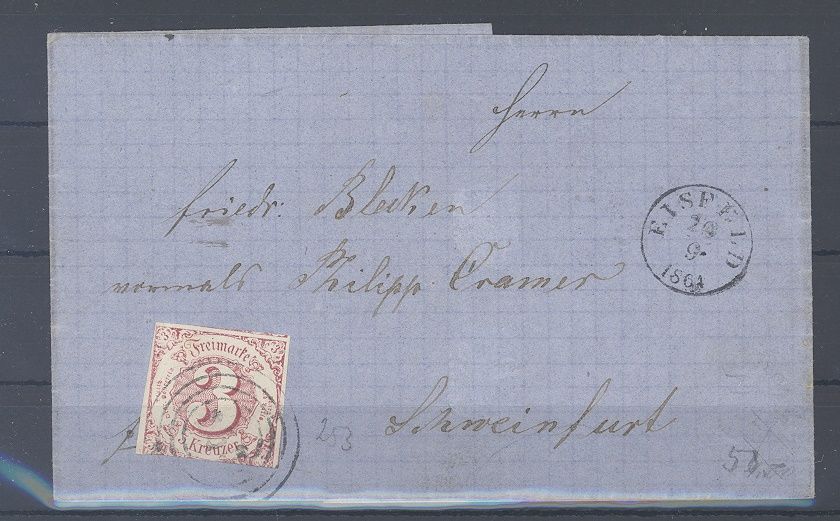 Herrn
Friedr: Blecken
vormals Philipp Cramer
Schweinfurt
EISFELD
20
9.
1861
Freimarke
3
3 Kreuzer.
253